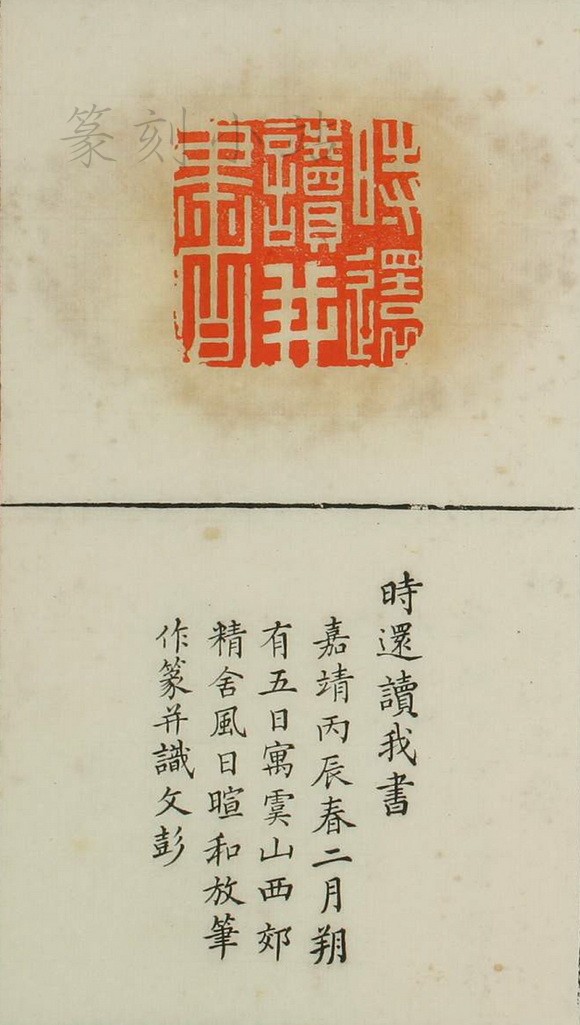 篆刻小站
時還
讀我
書
時還讀我書
嘉靖丙辰春二月朔
有五日寓虞山西郊
精舍風日暄和放筆
作篆并識文彭